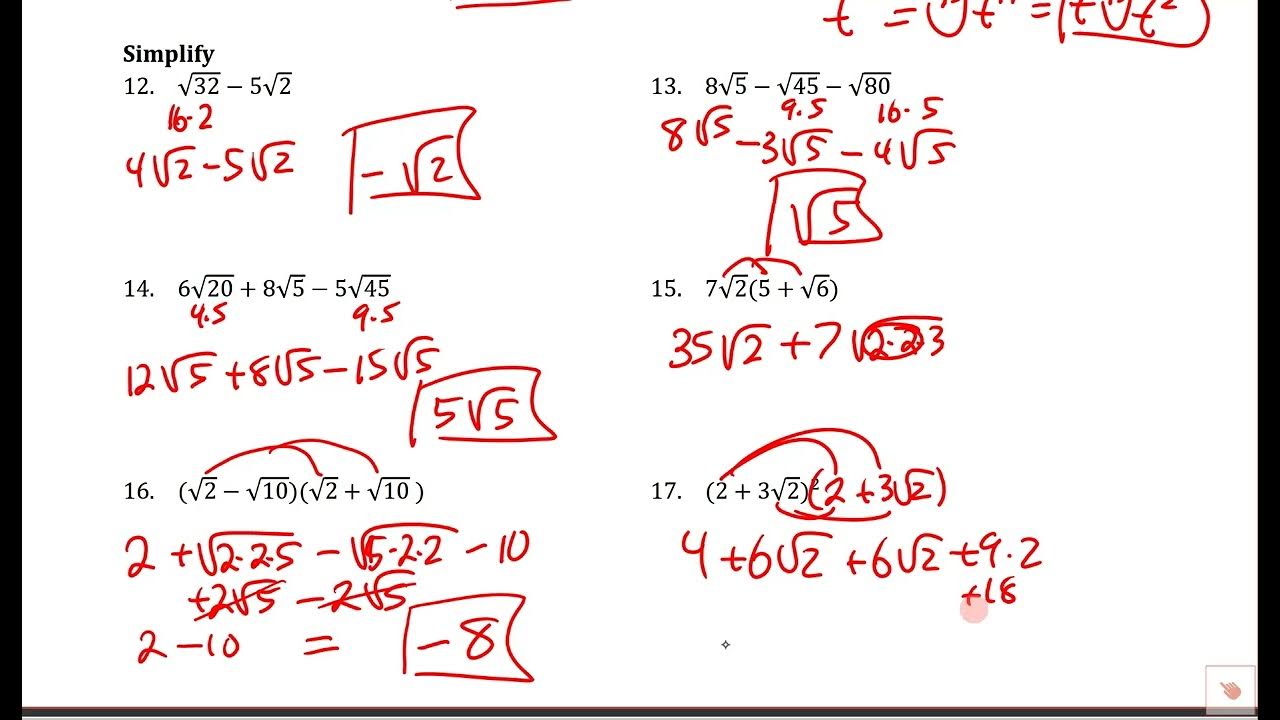 t = ¹¹√t¹¹ = t ¹¹√t²
Simplify
12. √32 − 5√2
16·2
4√2 − 5√2
−√2
13. 8√5 − √45 − √80
9·5 16·5
8√5 − 3√5 − 4√5
√5
14. 6√20 + 8√5 − 5√45
4·5 9·5
12√5 + 8√5 − 15√5
5√5
15. 7√2(5 + √6)
35√2 + 7√2·2·3
16. (√2 − √10)(√2 + √10 )
2 + √2·2·5 − √5·2·2 − 10
+2√5 − 2√5
2 − 10 = −8
17. (2 + 3√2)² (2 + 3√2)
4 + 6√2 + 6√2 + 9·2
+18